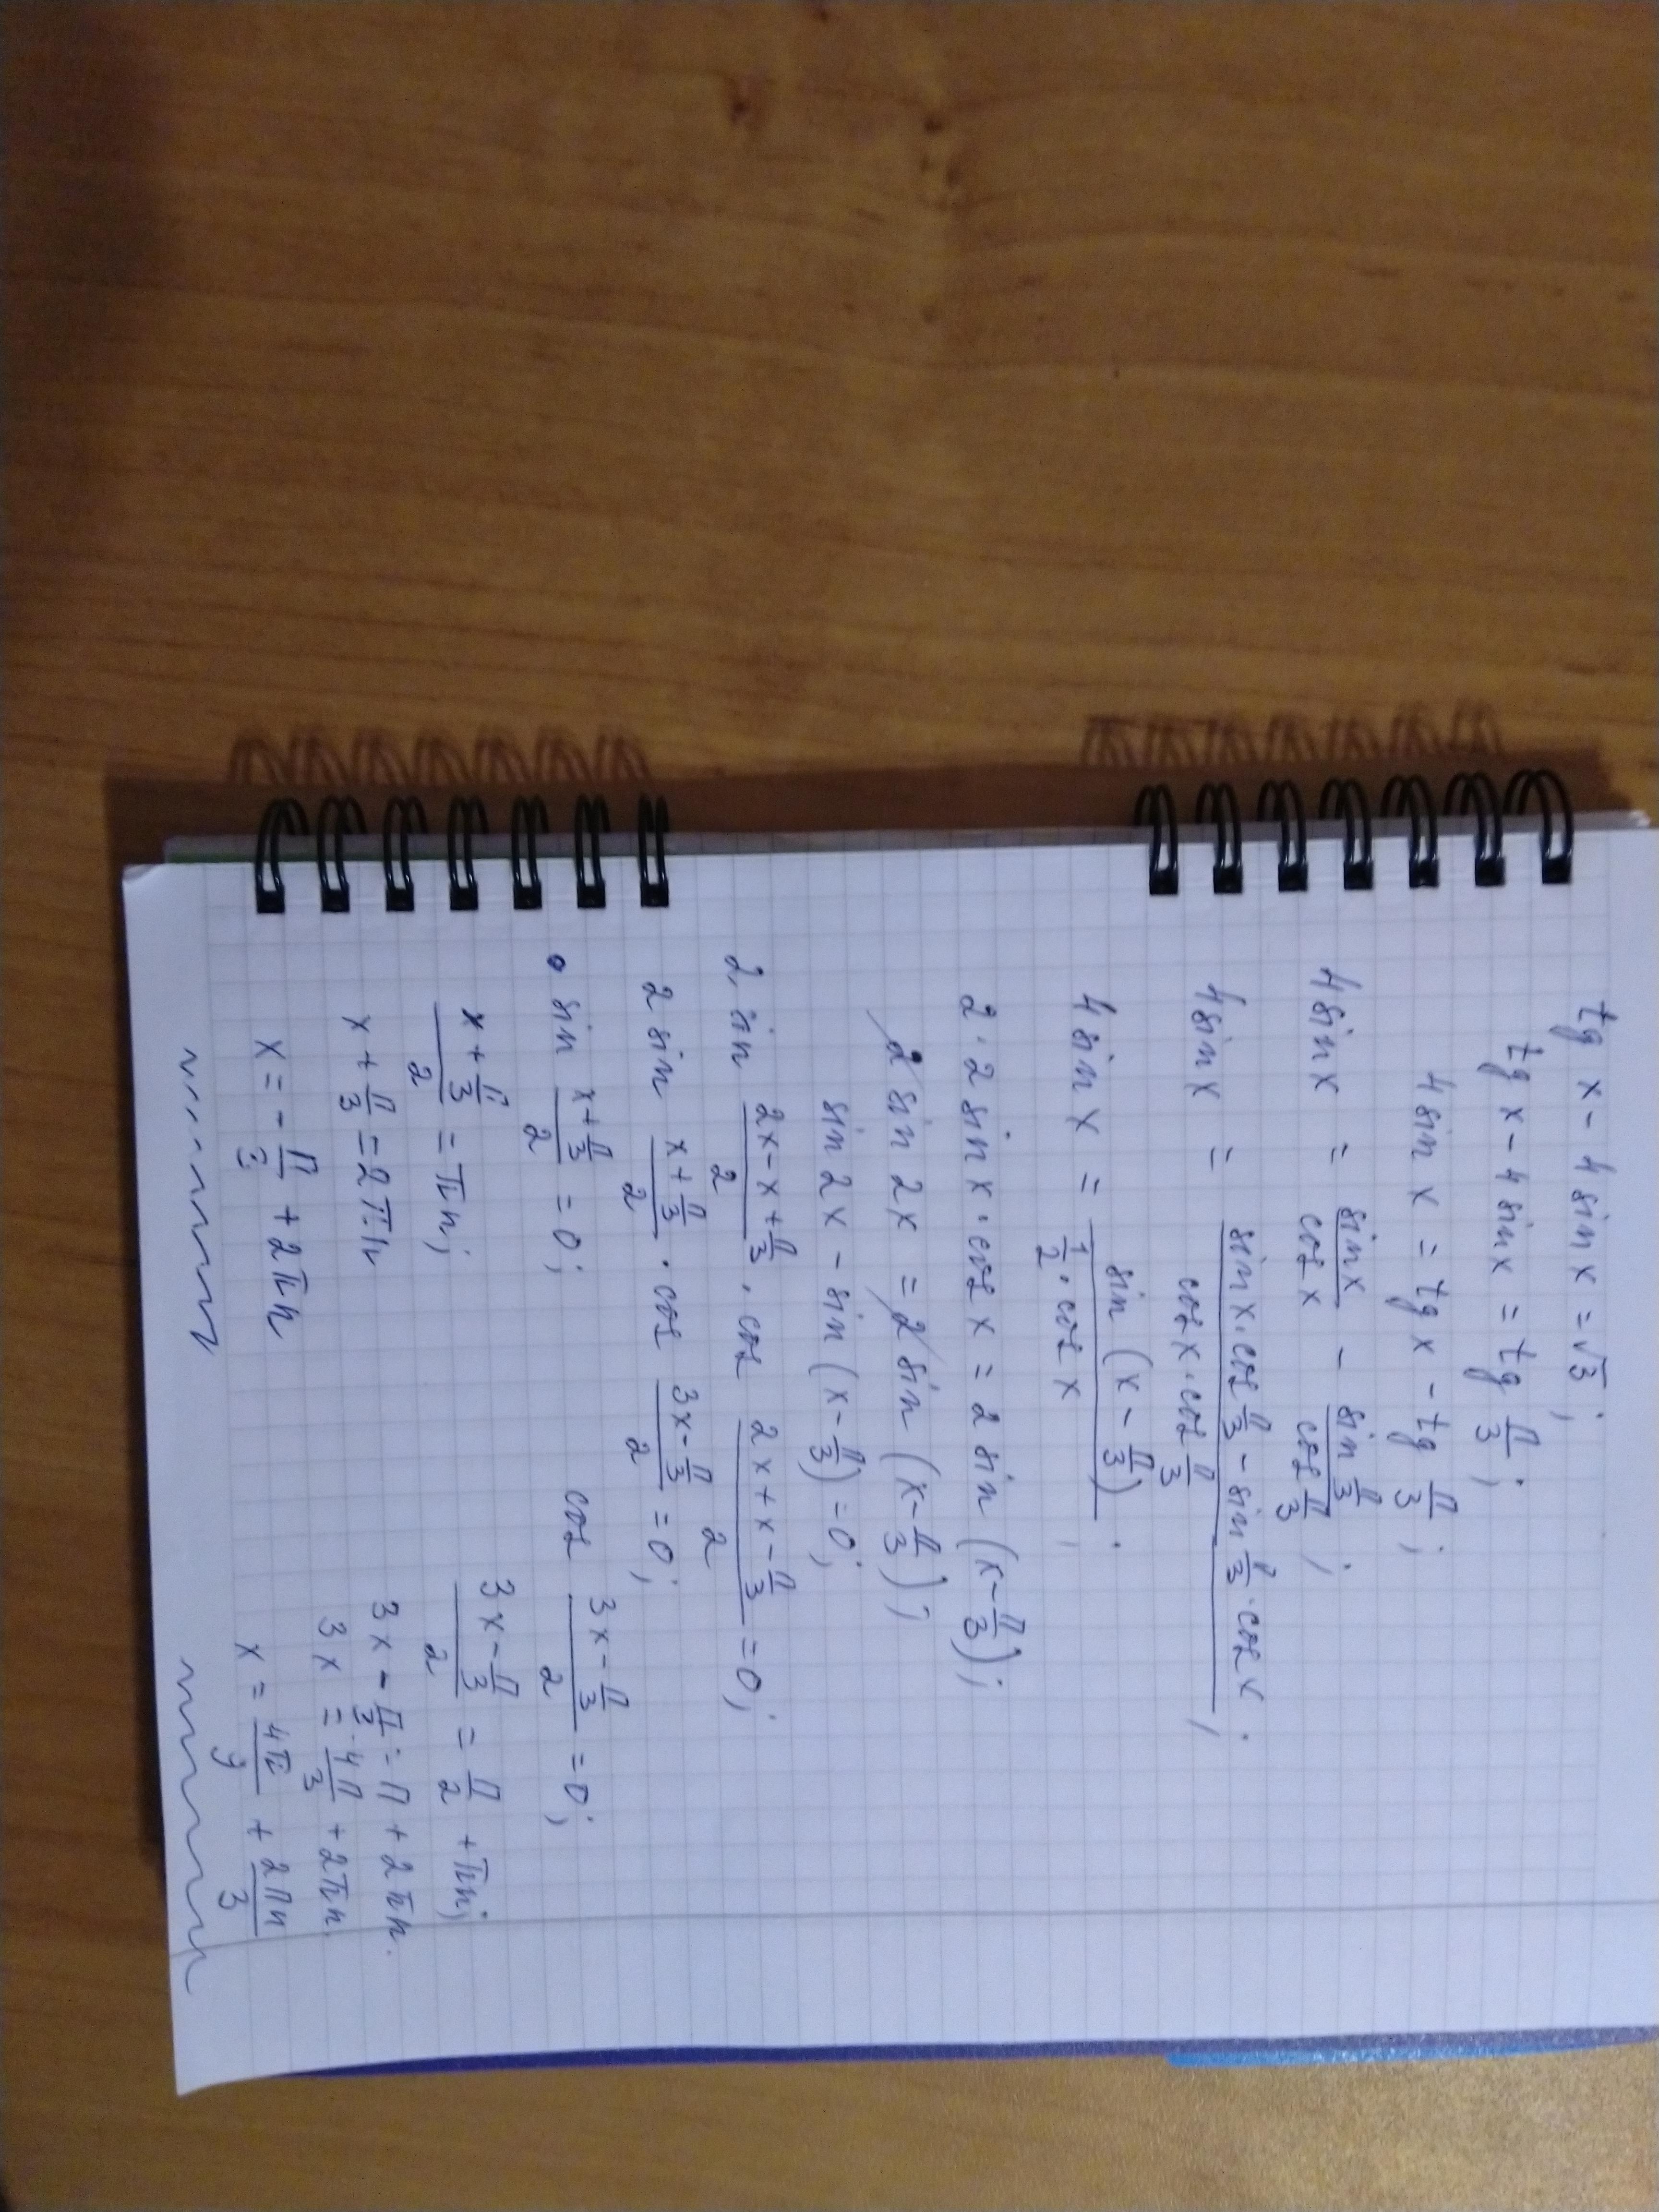 tg x - 4 sin x = √3;
tg x - 4 sin x = tg π/3;
4 sin x = tg x - tg π/3;
4 sin x = sin x / cos x - sin π/3 / cos π/3;
4 sin x = (sin x · cos π/3 - sin π/3 · cos x) / (cos x · cos π/3);
4 sin x = sin (x - π/3) / (1/2 · cos x);
2 · 2 sin x · cos x = 2 sin (x - π/3);
2 sin 2x = 2 sin (x - π/3);
sin 2x - sin (x - π/3) = 0;
2 sin (2x - x + π/3)/2 · cos (2x + x - π/3)/2 = 0;
2 sin (x + π/3)/2 · cos (3x - π/3)/2 = 0;
• sin (x + π/3)/2 = 0; cos (3x - π/3)/2 = 0;
(x + π/3)/2 = πn; (3x - π/3)/2 = π/2 + πn;
x + π/3 = 2πn 3x - π/3 = π + 2πn.
3x = 4π/3 + 2πn.
x = - π/3 + 2πn x = 4π/9 + 2πn/3